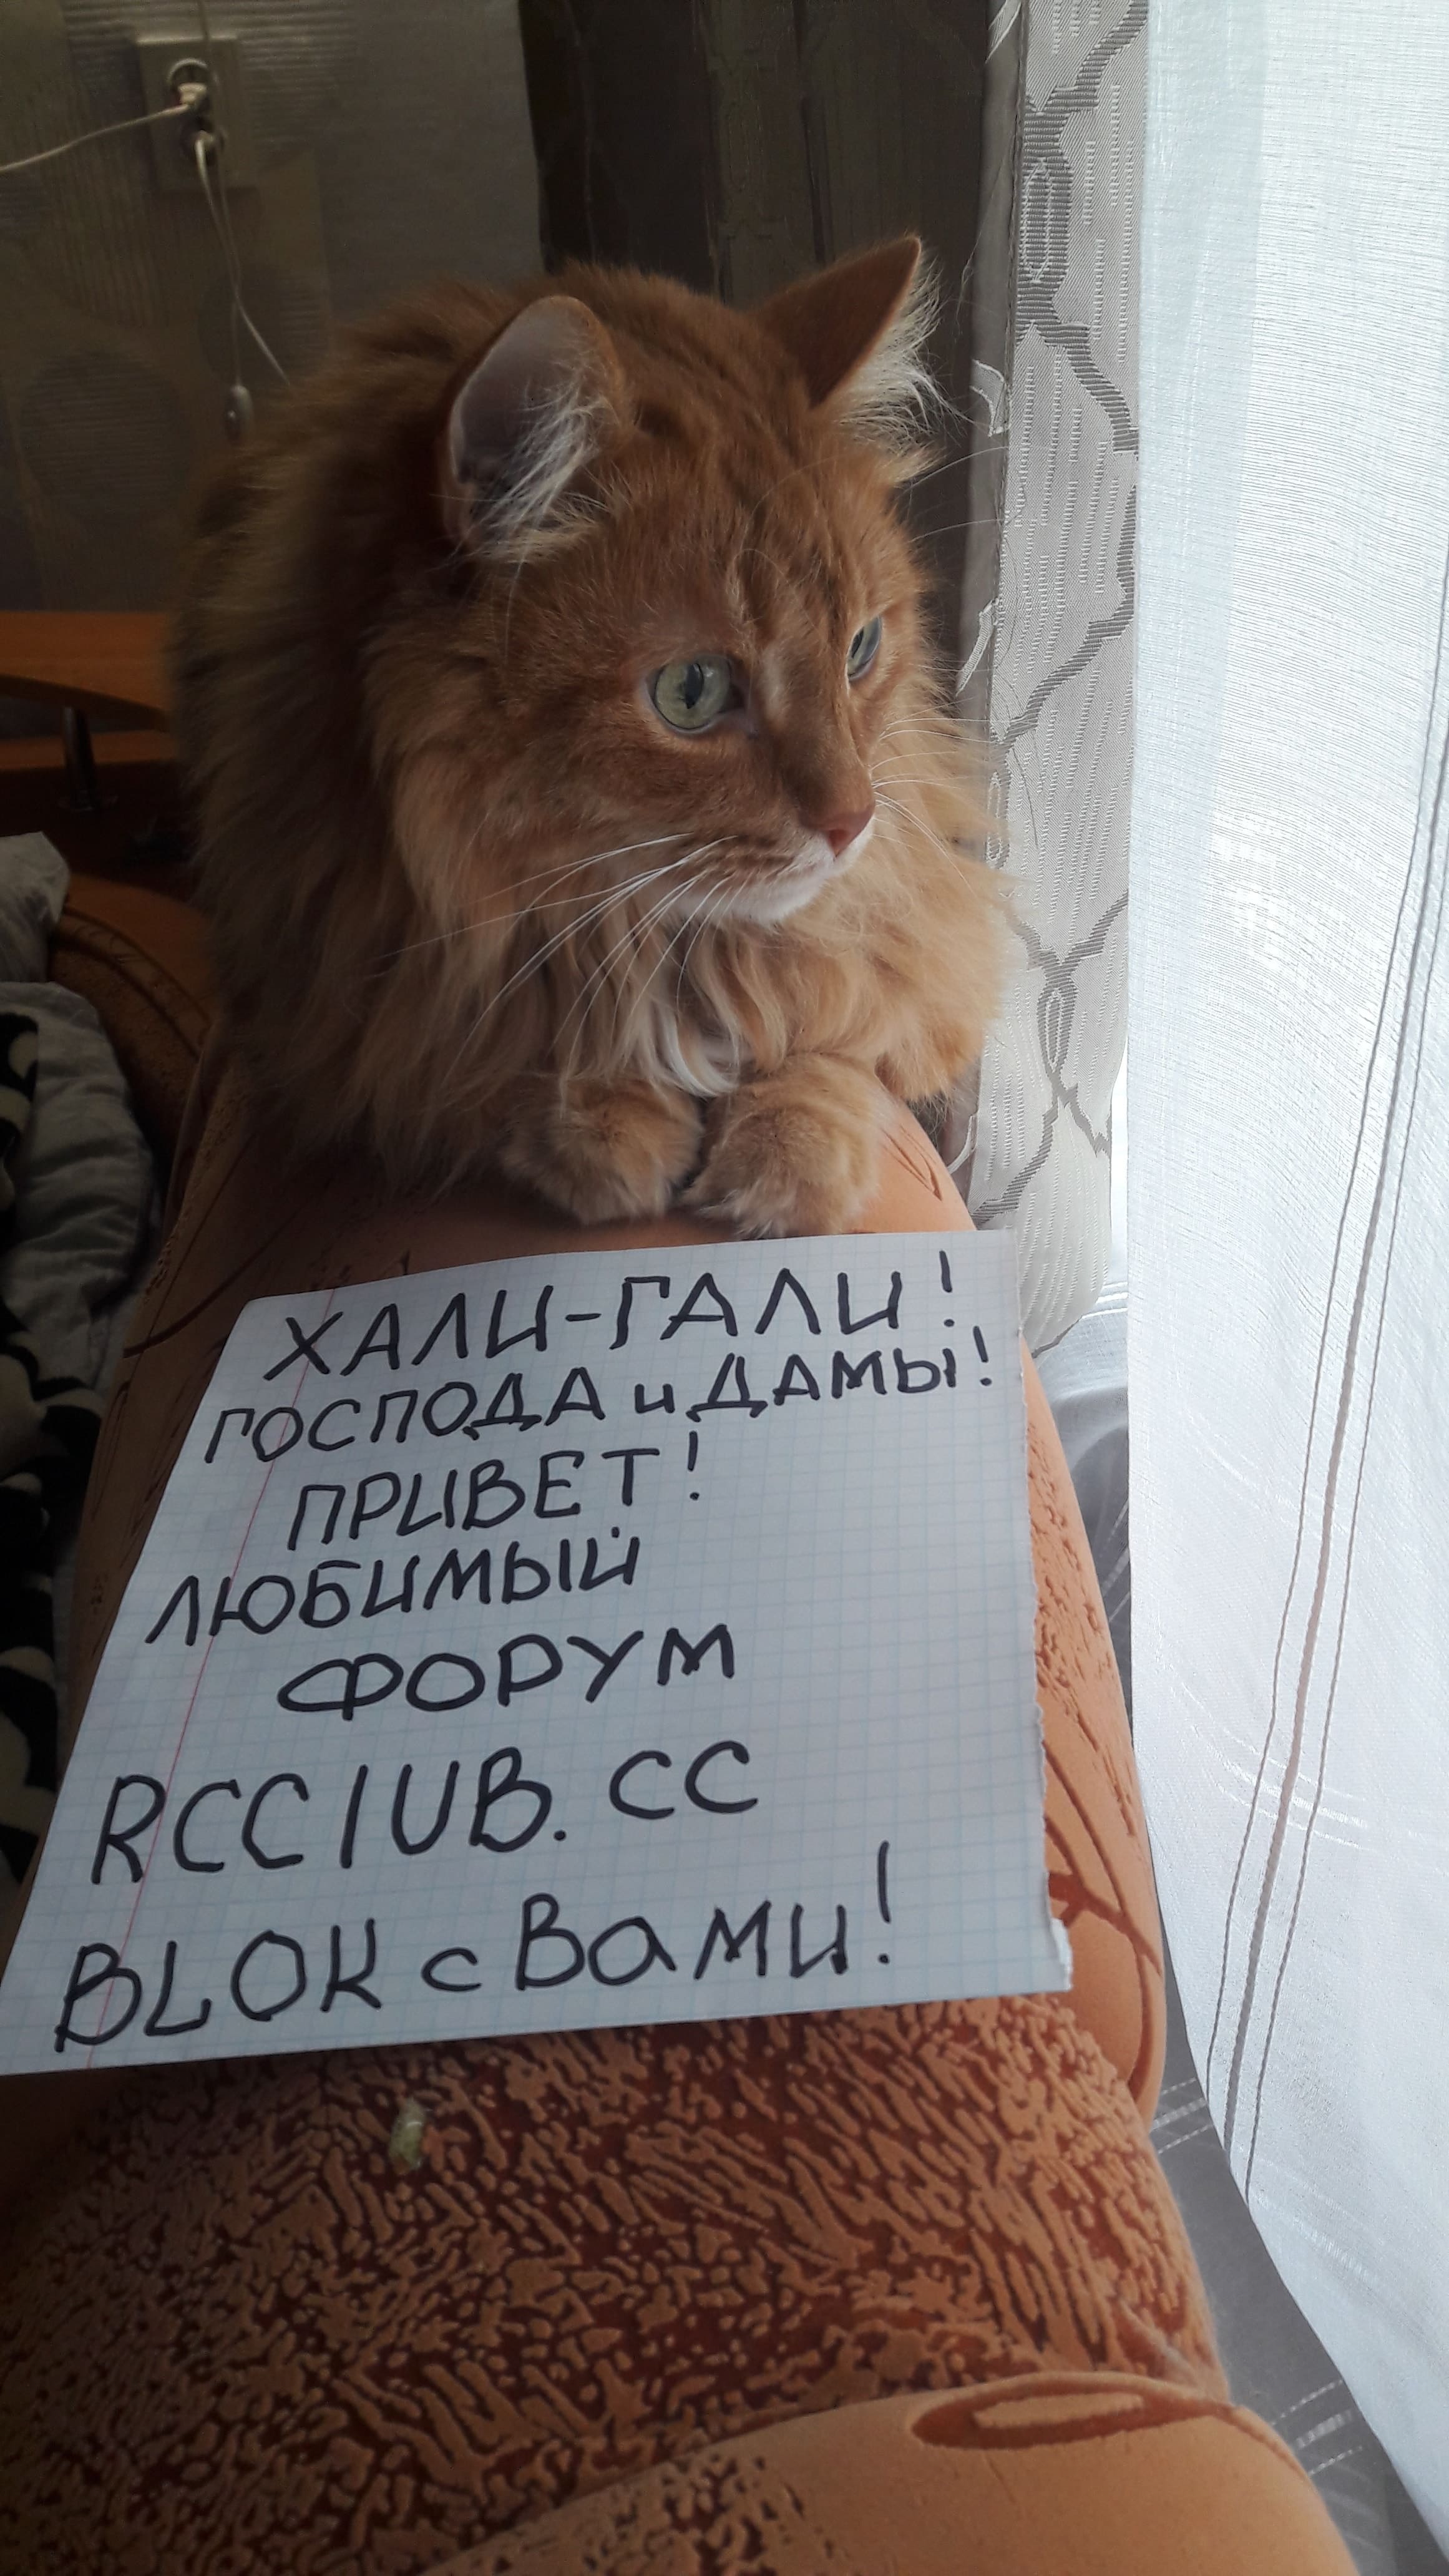 ХАЛИ-ГАЛИ!
ГОСПОДА и ДАМЫ!
ПРИВЕТ!
ЛЮБИМЫЙ
ФОРУМ
RCClUB.CC
BLOK с Вами!